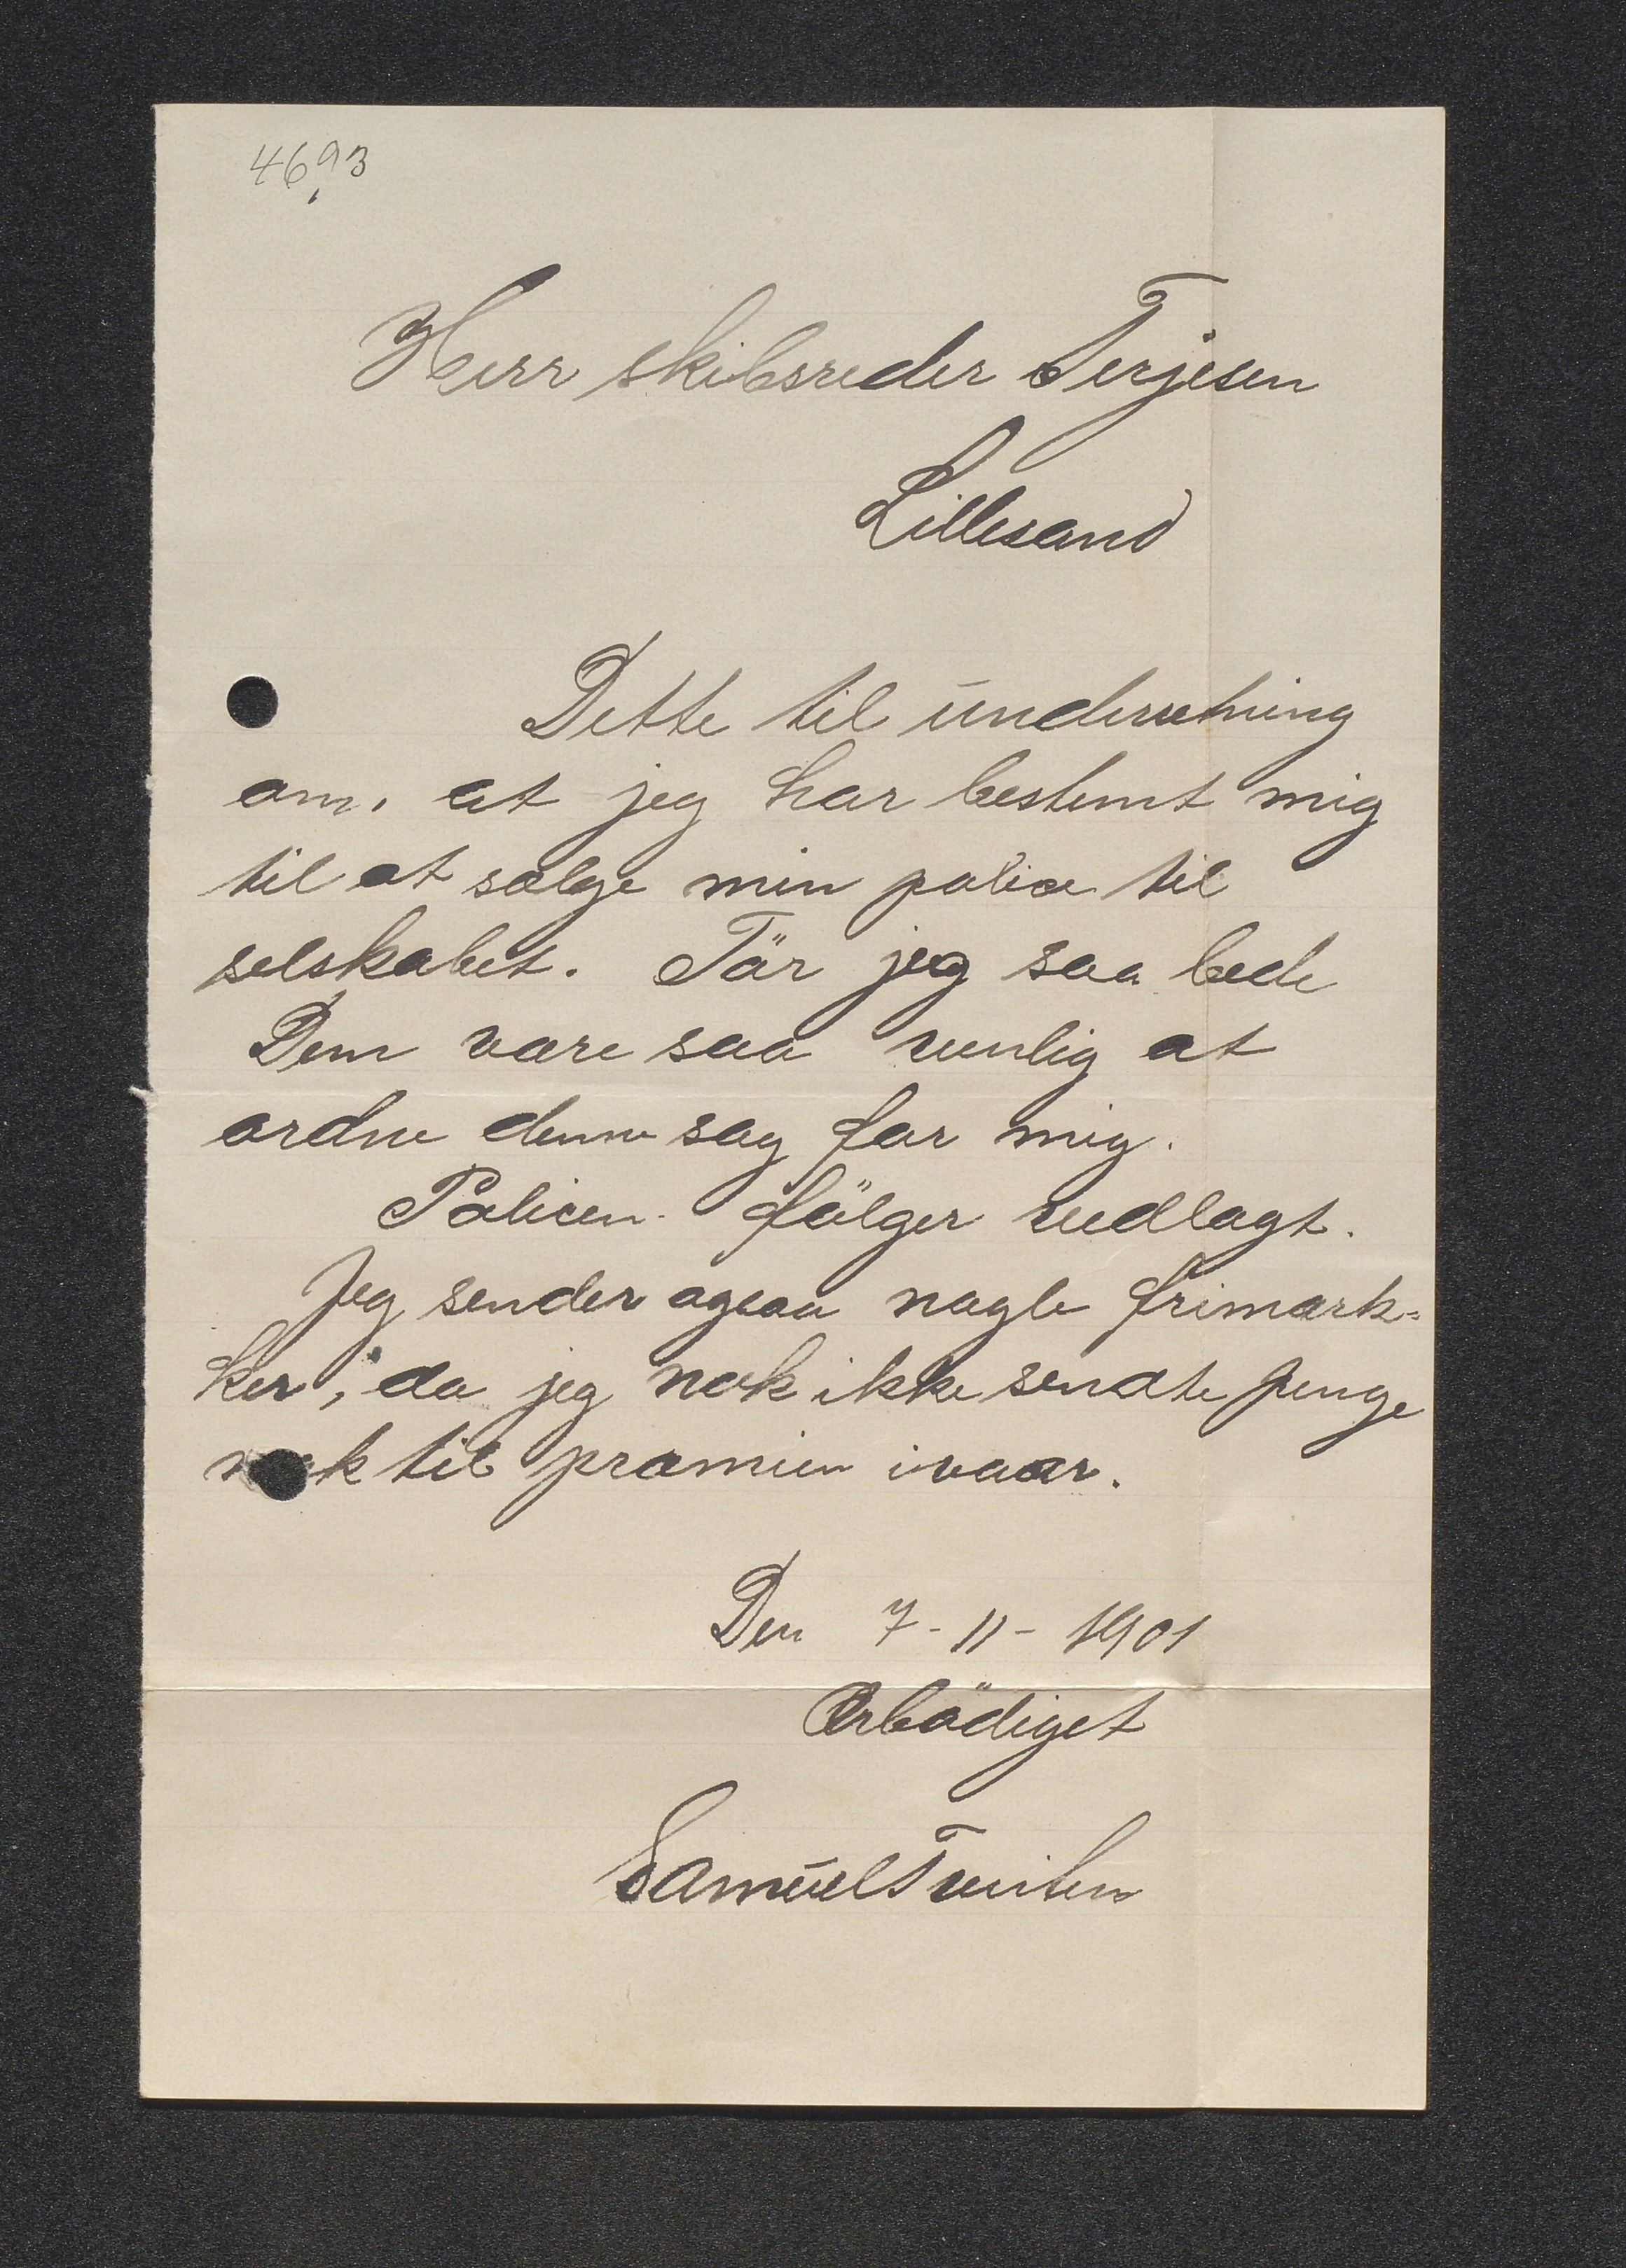 4693
Herr skibsreder Terjesen
Lillesand
Dette til underretning
om, at jeg har bestemt mig
til at sælge min police til
selskabet. Tör jeg saa bede
Dem være saa venlig at
ordne denne sag for mig.
Policen fölger vedlagt.
Jeg sender ogsaa nogle frimærk-
ker, da jeg nok ikke sendte penge
nok til præmien ivaar.
Den 7-11-1901
Ærbödigst
Samuel Tveiten